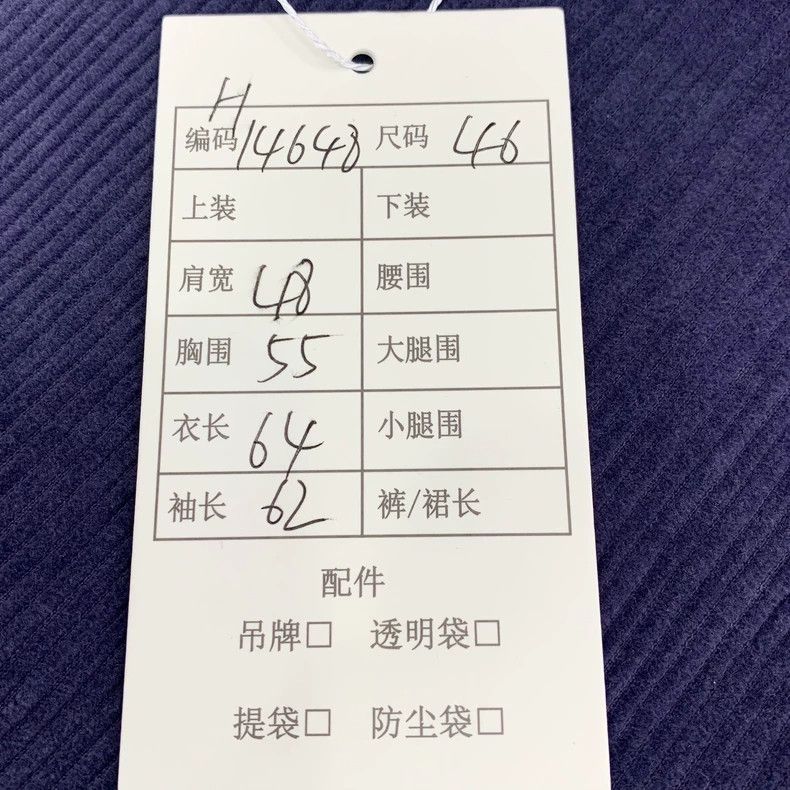 编码 H14648 尺码 46
上装 下装
肩宽 48 腰围
胸围 55 大腿围
衣长 64 小腿围
袖长 62 裤/裙长
配件
吊牌□ 透明袋□
提袋□ 防尘袋□